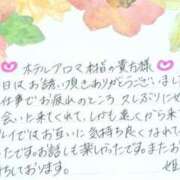 ホテルアロマ 本指の貴方様
日はお誘い頂きありがとうございまし
仕事でお疲れのところ 久しぶりに
会いに来てくれて、しかも遠くから来て
レイではお互いに気持ち良くなれて
ったです。お話も楽しかったです。また
ちしております。